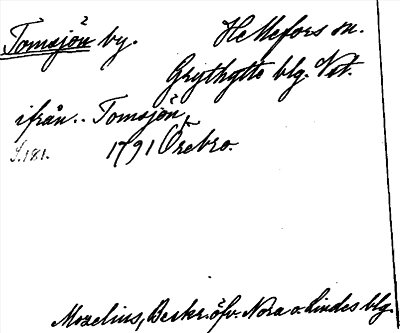 Tomsjön by. Hellefors sn.
Grythytte blg. Vst.
ifrån.. Tomsjön,
S.181. 1791 Örebro.
Mozelius, Beskr. öfv. Nora o. Lindes blg.